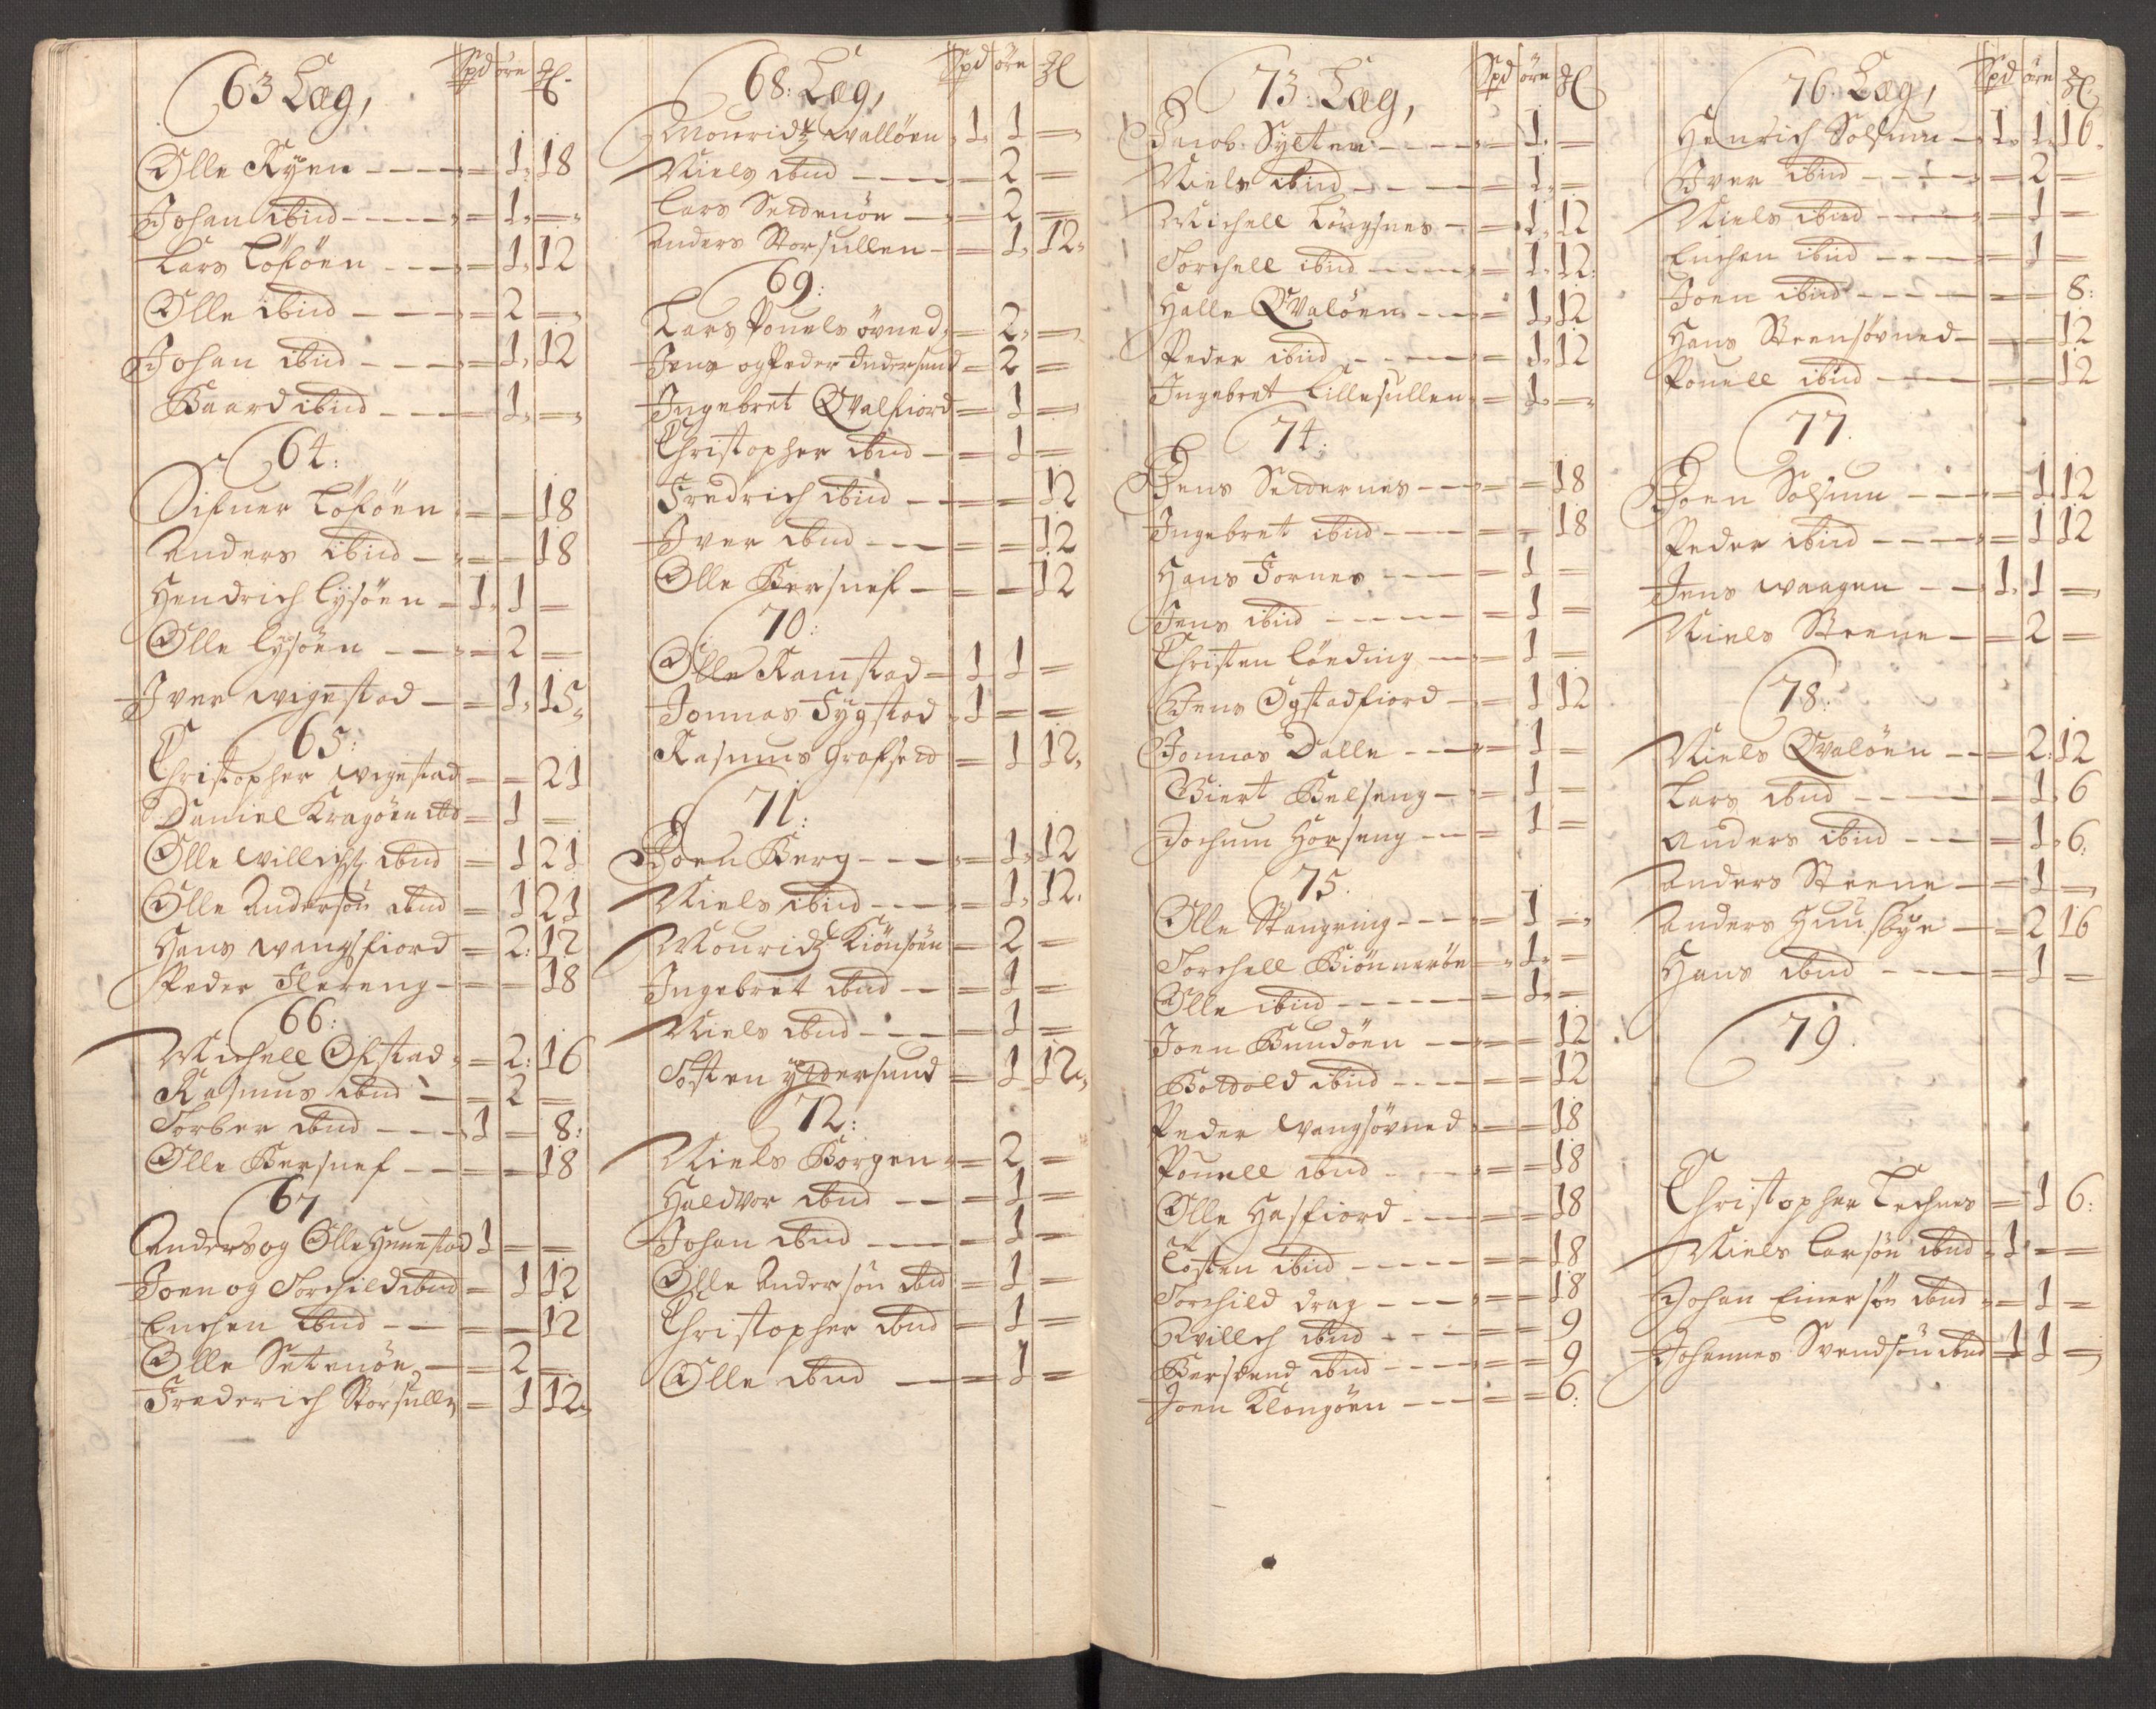 63 Læg, Spd öre ₰
Olle Ryen - - - = 1, 18
Johan ibid - - - = 1, =
Lars Löföen - - - = 1, 12
Olle ibid - - - = 2 =
Johan ibid - - - = 1, 12
Baard ibid - - - = 1, =
64:
Sifuer Löföen = = 18
Anders ibid - = = 18
Hendrich Lysöen - 1, 1 =
Olle Lysöen - - - = 2 =
Iver Wigestad - = 1, 15
65:
Christopher Wigestad = = 21
Daniel Kragöen ibd = 1 =
Olle Willichs ibid = 1 21
Olle Andersön ibid = 1 21
Hans Wangsfiord = 2: 12
Peder Flereng - = = 18
66:
Michell Ofstad = 2: 16
Rasmus ibid - = 2 =
Torber ibid - - - 1 = 8:
Olle Bersnef - - = = 18
67
Anders og Olle Hunestad 1 = =
Joen og Torchild ibid = 1 12
Enchen ibid - - = = 12
Olle Setenöe - = 2 =
Frederich Storsulle = 1 12
68: Læg, Spd öre ₰
Mouridtz Walløen 1, 1 =
Niels ibid - - - = 2 =
Lars Setdenöe - = 2 =
Anders Storsullen - = 1, 12
69:
Lars Pouels övned = 2, =
Jens og Peder Indersund = 2 =
Ingebret Qvalfiord = 1 =
Christopher ibid - = 1 =
Fredrich ibid - - = = 12
Iver ibid - - - = = 12
Olle Bersnef - = = 12
70:
Olle Ramstad - 1 1 =
Jonnas Fygstad 1 = =
Rasmus Grafset = 1 12,
71:
Joen Berg - - - = 1, 12
Niels ibid - - - = 1, 12.
Mouridtz Kiönsöen = 2 =
Ingebret ibid - - = 1 =
Niels ibid - - - = 1 =
Tosten Yttersund = 1 12
72:
Niels Borgen = 2 =
Haldvor ibid - - = 1 =
Johan ibid - - - = 1 =
Olle Andersön ibid = 1 =
Christopher ibid = 1 =
Olle ibid - - = 1 =
73: Læg, Spd öre ₰
Jacob Sylten - - - = 1, =
Niels ibid - - - = 1, =
Michell Lörgsnes - = 1, 12
Torchell ibid - - - = 1, 12:
Halle Qvalöen - - = 1, 12
Peder ibid - - - = 1, 12
Ingebret Lillesullen = 1, =
74:
Jens Setternes - - = = 18
Ingebret ibid - - - = = 18
Hans Fornes - - - = 1 =
Jens ibid - - - - = 1 =
Christen Lönding - = 1 =
Jens Ogstadfiord - = 1 12
Jonnas Dalle - - - = 1 =
Biert Belseng - = 1 =
Jochum Horseng - - = 1 =
75.
Olle Stangring - - - = 1 =
Torchell Biönnerön = 1, =
Olle ibid - - - - = 1, =
Joen Bundöen - - = = 12
Botdold ibid - - - = = 12
Peder Wangsövned = = 18
Pouell ibid - - - = = 18
Olle Hasfiord - - = = 18
Tosten ibid - - - - = = 18
Torchild Drag - - - = = 18
Willch ibid - - - = = 9
Berstend ibid - - - = = 9
Joen Klongöen - - - = = 6:
76: Læg, Spd öre ₰
Henrich Solsum - 1, 1, 16
Iver ibid - - - = 2 =
Niels ibid - - - = 1 =
Enchen ibid - - - = 1 =
Joen ibid - - - = = 8:
Hans Steensövned - = = 12
Pouell ibid - - - = = 12
77.
Joen Solsum - - - = 1, 12
Peder ibid - - - = 1 12
Jens Waagen - - 1, 1 =
Niels Steene - = 2 =
78:
Niels Qvalöen - - = 2: 12
Lars ibid - - - = 1, 6
Anders ibid - - - = 1, 6:
Anders Steene - = 1 =
Anders Huusbye - = 2 16
Hans ibid - - - = 1 =
79.
Christopher Technes = 1 6:
Niels Larsön ibid 1 = =
Johan Einersön ibid = 1 =
Johannes Svendsön ibid 1 1 =